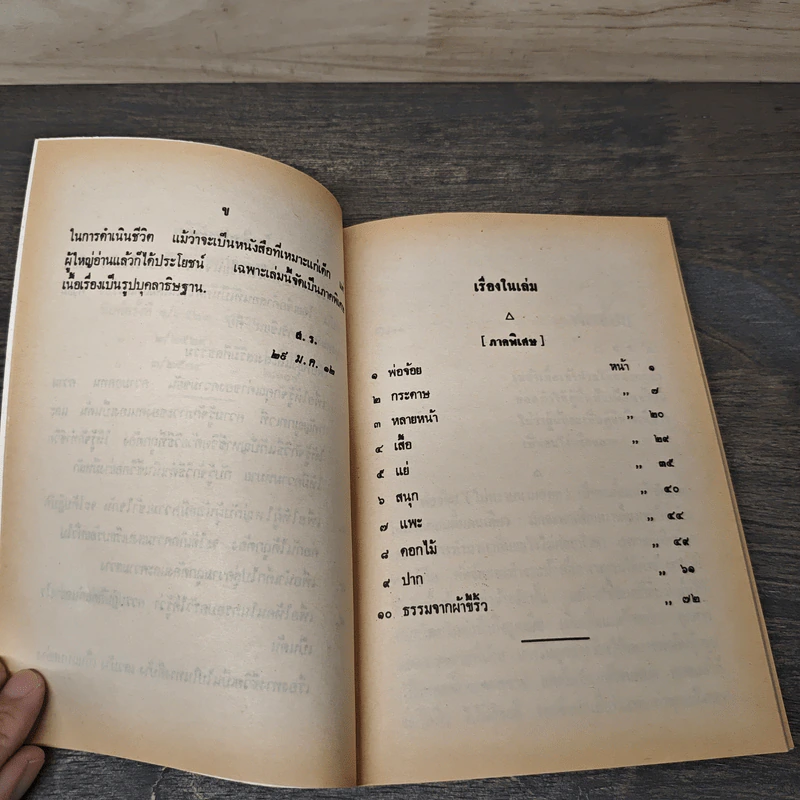 ข
ในการดำเนินชีวิต แม้ว่าจะเป็นหนังสือที่เหมาะแก่เด็ก
ผู้ใหญ่อ่านแล้วก็ได้ประโยชน์ เฉพาะเล่มนี้จัดเป็นภาคพิเศษ
เนื้อเรื่องเป็นรูปบุคลาธิษฐาน.
ส. ร.
๒๕ ม.ค. ๑๒
เรื่องในเล่ม
[ ภาคพิเศษ ]
๑ พ่อจ้อย หน้า ๑
๒ กระดาษ ,, ๗
๓ หลายหน้า ,, ๒๐
๔ เสื้อ ,, ๒๙
๕ แย่ ,, ๓๕
๖ สนุก ,, ๔๐
๗ แพะ ,, ๔๔
๘ ดอกไม้ ,, ๔๙
๙ ปาก ,, ๖๑
๑๐ ธรรมจากผ้าขี้ริ้ว ,, ๗๒